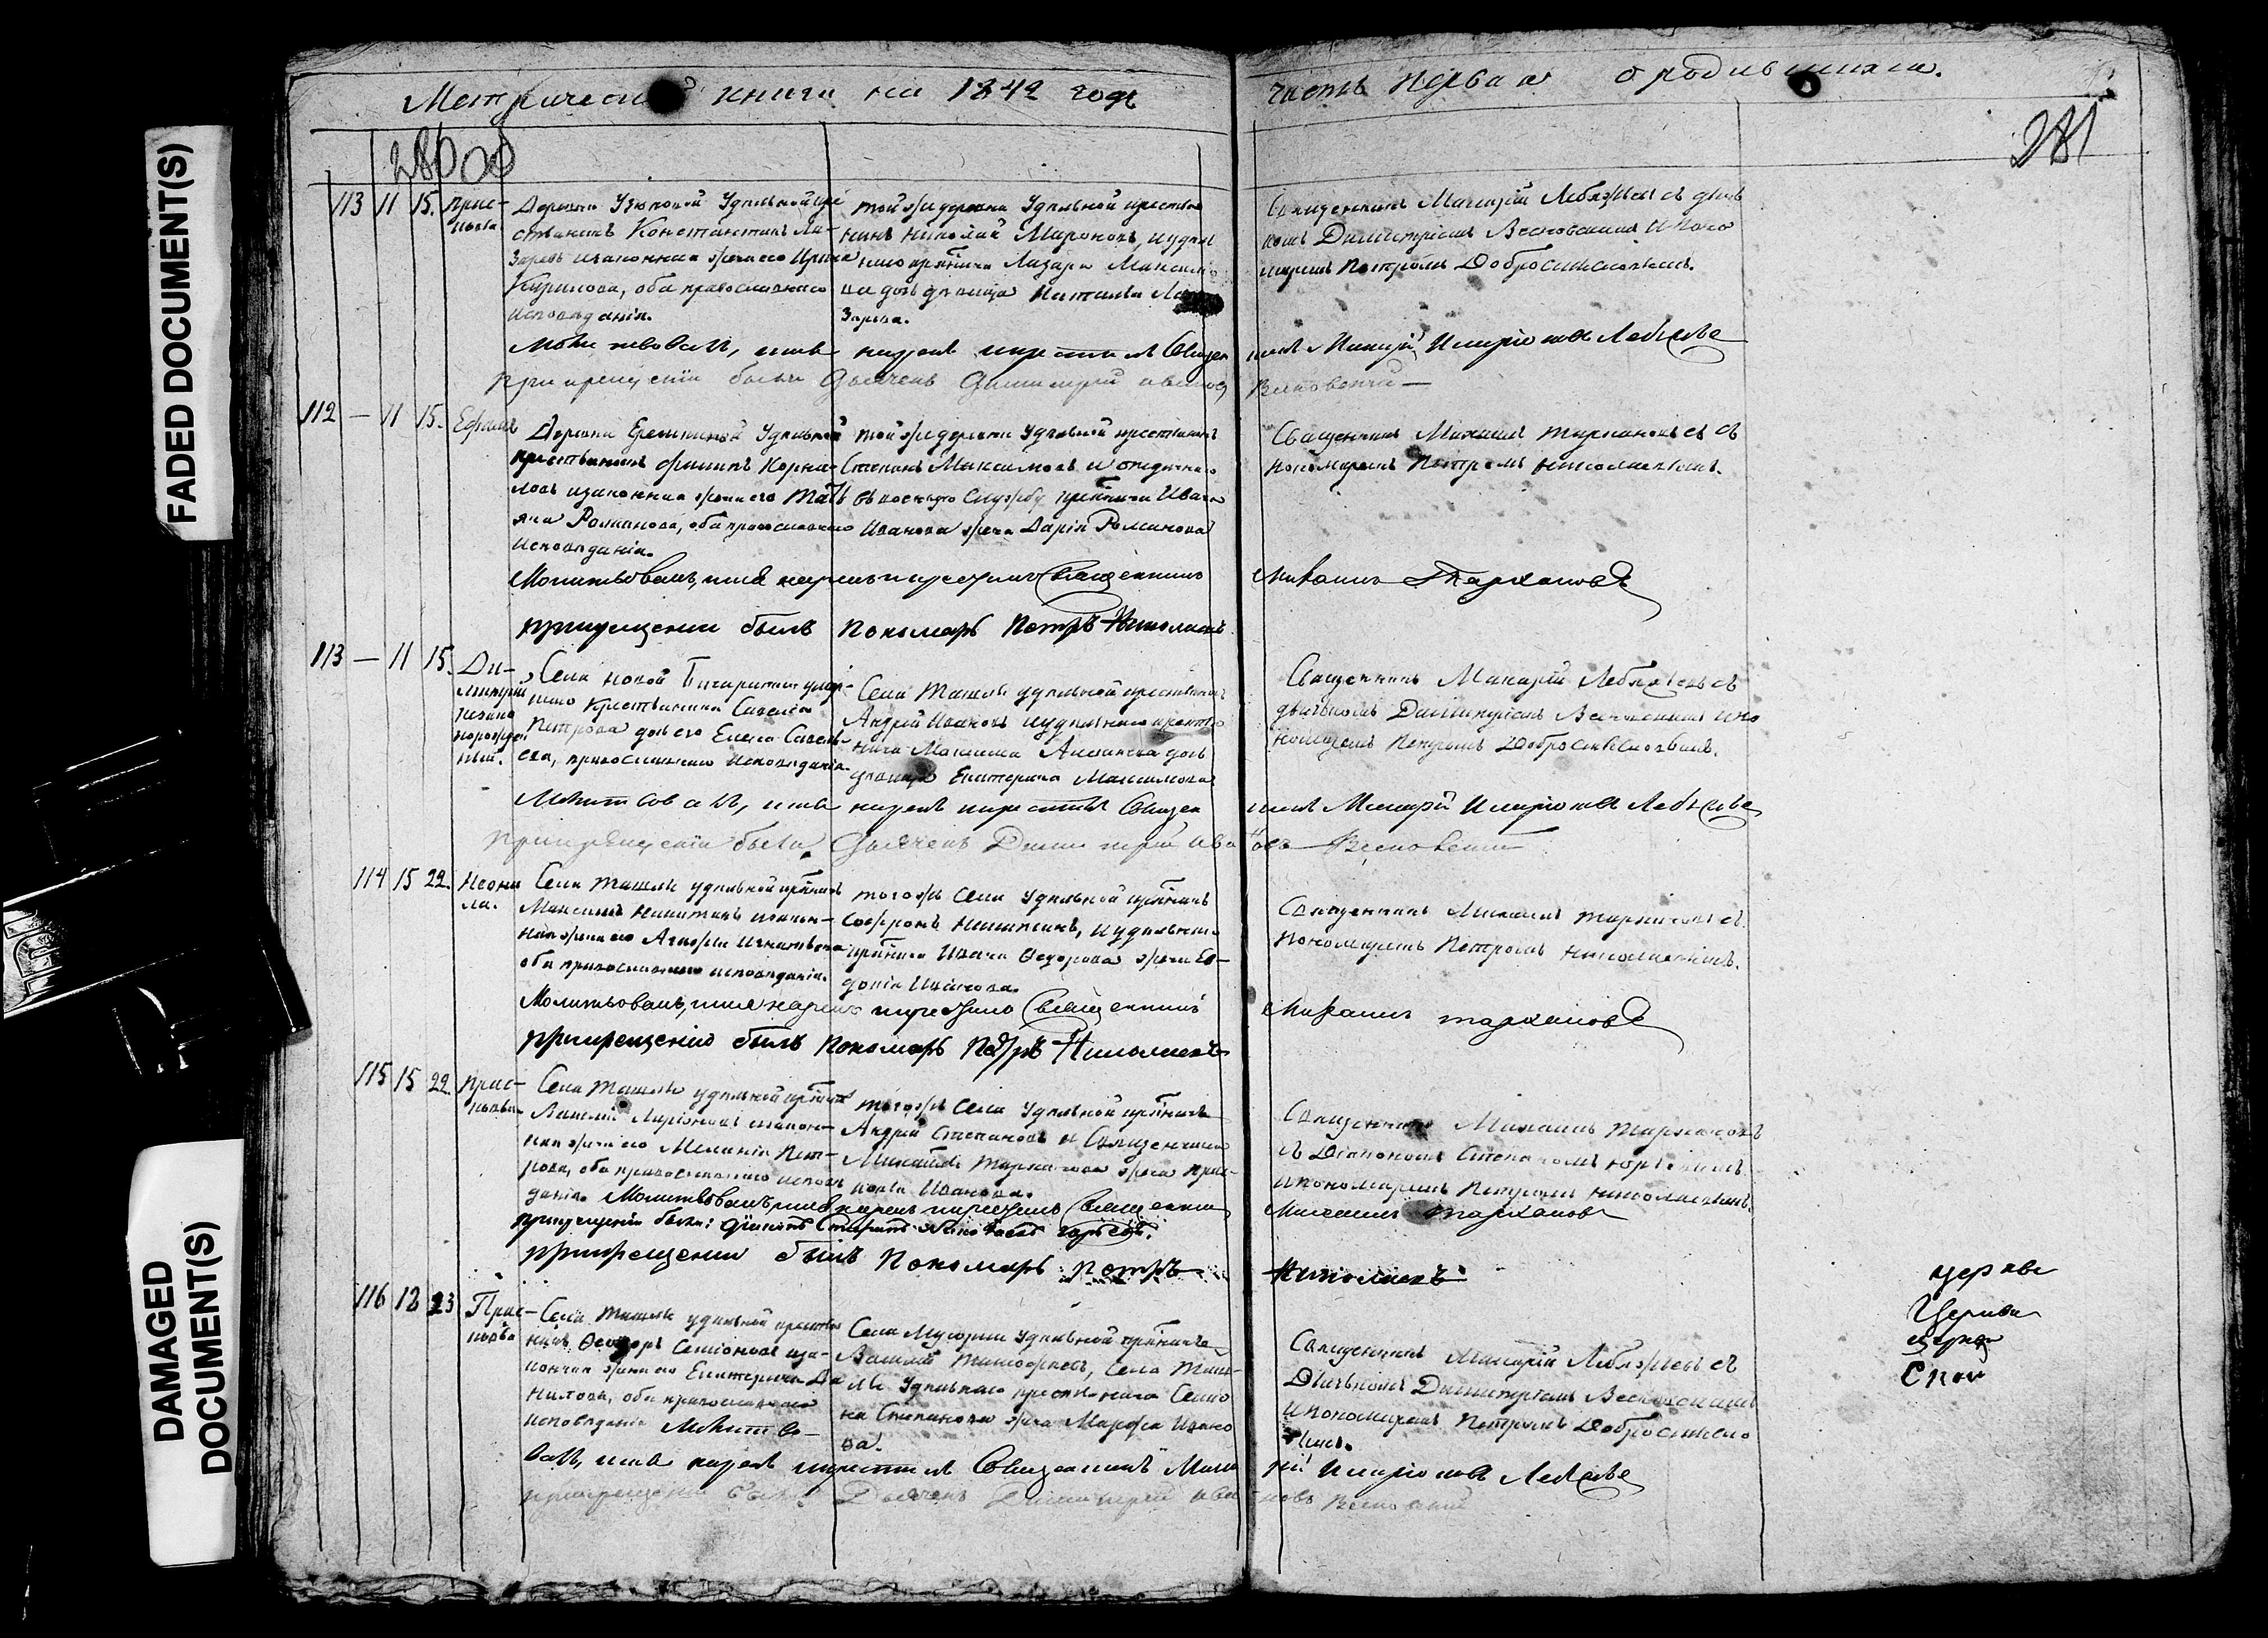 FADED DOCUMENT(S)
DAMAGED DOCUMENT(S)
книги на 1842 годъ
часть первая о родившихся.
281
113 11 15. Прас-
ковья
Деревни Узюковой Удѣльной кре
стьянинъ Константинъ Ла-
заревъ и законная жена его Ирина
Кирилова, оба православнаго
исповѣданія.
той же деревни Удѣльной крестья
нинъ Николай Мироновъ, и удѣл
наго крестьянина Лазаря Максимо
ва дочь дѣвица Наталья Ла
зарева.
Священникъ Макарій Лебяжьевъ съ дьяч
комъ Димитріемъ Весновскимъ и поно
маремъ Петромъ Добросмысловымъ.
имя нарекъ и крестилъ Священ
никъ Макарій Иларіоновъ Лебяжьевъ
при крещеніи былъ Дьячекъ Димитрій Ивановъ
Весновскій
112 — 11 15. Ефимъ
Деревни Еремкиной Удѣльной
крестьянинъ Филипъ Корни-
ловъ и законная жена его Тать
яна Романова, оба православнаго
исповѣданія.
той же деревни Удѣльной крестьянинъ
Степанъ Максимовъ и отданнаго
въ военную службу крестьянина Ивана
Иванова жена Дарія Романова
Священникъ Михаилъ Тархановъ съ
пономаремъ Петромъ Николаевымъ.
Молитвовалъ, имя нарекъ и крестилъ Священникъ
Михаилъ Тархановъ
при крещеніи былъ Пономарь Петръ Николаевъ
113 — 11 15. Ди-
митрій
незако
норожден
ный.
Села Новой удѣл-
наго крестьянина Савелія
Петрова дочь его Елена Савель-
ева, православнаго исповѣданія.
Села Ташлы удѣльной крестьянинъ
Андрей Ивановъ и удѣльнаго крестья
нина Максима дочь
дѣвица Екатерина Максимова
Священникъ Макарій Лебяжьевъ съ
дьячкомъ Димитріемъ Весновскимъ и по
номаремъ Петромъ Добросмысловымъ.
Молитвовалъ, имя нарекъ и крестилъ Священ
никъ Макарій Иларіоновъ Лебяжьевъ
при крещеніи былъ Дьячекъ Димитрій Ива
новъ Весновскій
114 15 22. Неони
ла.
Села Ташлы удѣльной крестьянинъ
Максимъ Никитинъ и закон-
ная жена его Агафья Игнатьева
оба православнаго исповѣданія.
того же Села Удѣльной крестьянинъ
Софронъ Никитинъ, и удѣльнаго
крестьянина Ивана Ѳедорова жена Ев-
докія Иванова.
Священникъ Михаилъ Тархановъ съ
пономаремъ Петромъ Николаевымъ.
Молитвовалъ, имя нарекъ и крестилъ Священникъ
Михаилъ Тархановъ
при крещеніи былъ Пономарь Петръ Николаевъ
115 15 22. Прас-
ковья
Села Ташлы удѣльной крестьянинъ
Василій Ларіоновъ и закон-
ная жена его Меланія Пет-
рова, оба православнаго исповѣ
данія.
того же Села Удѣльной крестьянинъ
Андрей Степановъ и Священника
Михаила Тарханова жена Прас-
ковья Иванова.
Священникъ Михаилъ Тархановъ
съ Діакономъ Степаномъ Юрьевымъ
и пономаремъ Петромъ Николаевымъ.
Молитвовалъ, имя нарекъ и крестилъ Священникъ
Михаилъ Тархановъ
при крещеніи былъ Пономарь Петръ
Николаевъ
116 12 23 Прас-
ковья
Села Ташлы удѣльной крестья
нинъ Ѳеодоръ Семіоновъ и за-
конная жена его Екатерина Да
нилова, оба православнаго
исповѣданія
Села Мусорки Удѣльной крестьянинъ
Василій Тимофѣевъ, Села Таш-
лы Удѣльнаго крестьянина Семіо
на Степанова жена Марфа Ивано
ва.
Священникъ Макарій Лебяжьевъ съ
Дьячкомъ Димитріемъ Весновскимъ
и пономаремъ Петромъ Добросмысло
вымъ.
Молитво-
валъ, имя нарекъ и крестилъ Священникъ Мака
рій Иларіоновъ Лебяжьевъ
при крещеніи былъ Дьячекъ Димитрій Ива
новъ Весновскій
церкве
Церкви